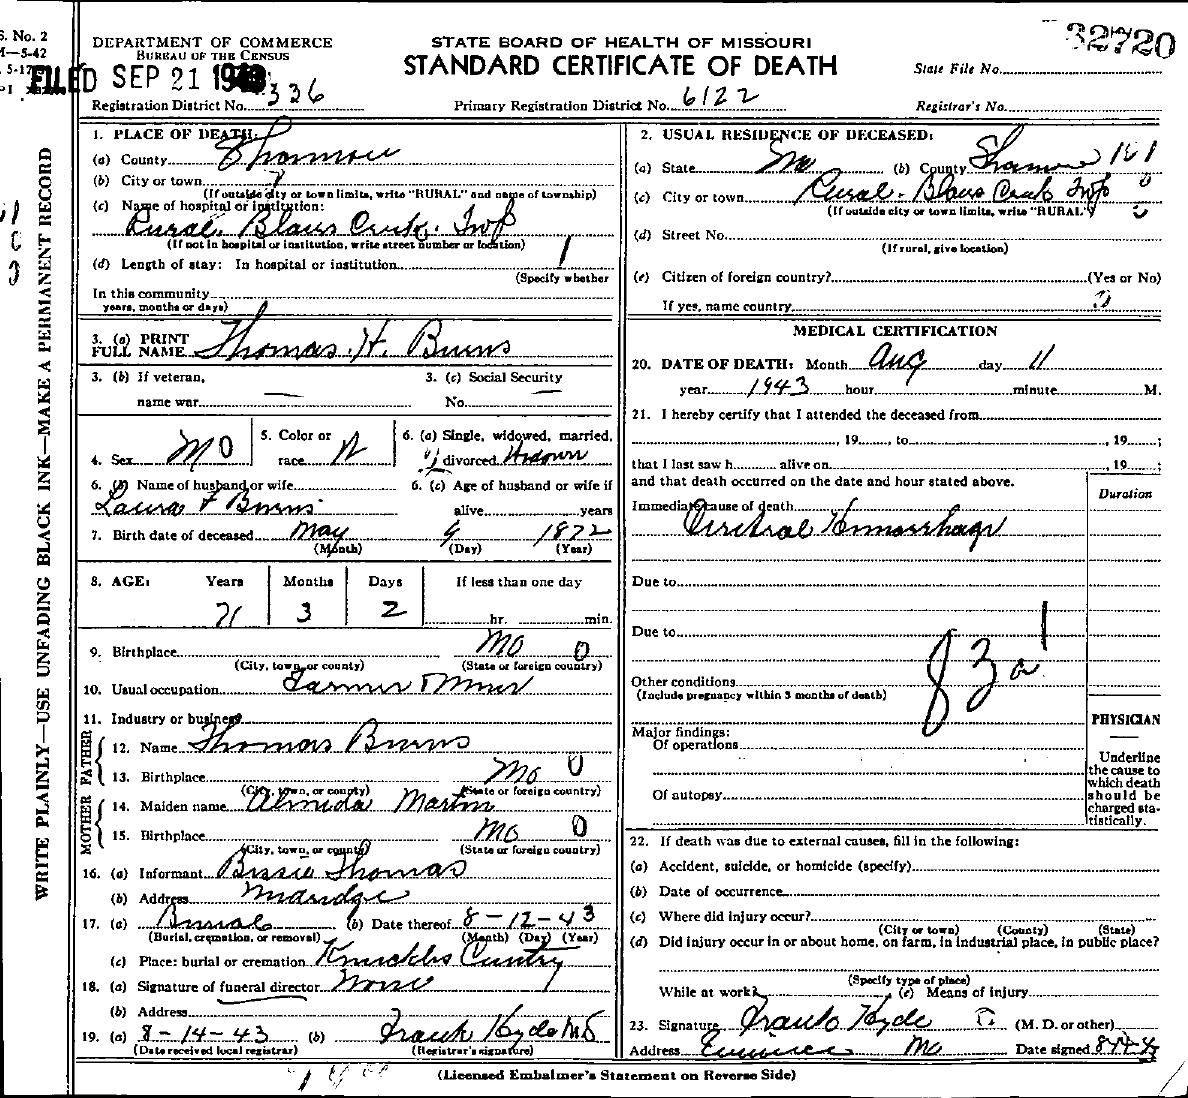 S. No. 2
M—5-42
5-17
P I
32720
DEPARTMENT OF COMMERCE
BUREAU OF THE CENSUS
STATE BOARD OF HEALTH OF MISSOURI
STANDARD CERTIFICATE OF DEATH
State File No.
FILED SEP 21
Registration District No. 336
Primary Registration District No. 6122
Registrar's No.
WRITE PLAINLY—USE UNFADING BLACK INK—MAKE A PERMANENT RECORD
1. PLACE OF DEATH:
(a) County Shannon
(b) City or town
(If outside city or town limits, write "RURAL" and name of township)
(c) Name of hospital or institution:
Rural. Blairs Creek. Twp
(If not in hospital or institution, write street number or location)
(d) Length of stay: In hospital or institution
(Specify whether
In this community
years, months or days)
2. USUAL RESIDENCE OF DECEASED:
(a) State Mo (b) County Shannon 101
(c) City or town Rural. Blairs Creek Twp
(If outside city or town limits, write "RURAL")
(d) Street No.
(If rural, give location)
(e) Citizen of foreign country? (Yes or No)
If yes, name country
3. (a) PRINT
FULL NAME Thomas. H. Burns
3. (b) If veteran,
name war —
3. (c) Social Security
No. —
4. Sex M 0
5. Color or
race W
6. (a) Single, widowed, married,
divorced Widown
6. (b) Name of husband or wife
Laura F Burns
6. (c) Age of husband or wife if
alive years
7. Birth date of deceased May 9 1872
(Month) (Day) (Year)
8. AGE: Years Months Days If less than one day
71 3 2 hr. min.
9. Birthplace Mo 0
(City, town, or county) (State or foreign country)
10. Usual occupation Farmer & Miner
11. Industry or business
FATHER
12. Name Thomas Burns
13. Birthplace Mo 0
(City, town, or county) (State or foreign country)
MOTHER
14. Maiden name Almida Martin
15. Birthplace Mo 0
(City, town, or county) (State or foreign country)
16. (a) Informant Bessie Thomas
(b) Address
17. (a) Burial (b) Date thereof 8-12-43
(Burial, cremation, or removal) (Month) (Day) (Year)
(c) Place: burial or cremation Knuckles
18. (a) Signature of funeral director None
(b) Address
19. (a) 8-14-43 (b) Frank Hyde MD
(Date received local registrar) (Registrar's signature)
MEDICAL CERTIFICATION
20. DATE OF DEATH: Month Aug day 11
year 1943 hour minute M.
21. I hereby certify that I attended the deceased from
, 19 , to , 19 ;
that I last saw h alive on , 19 ;
and that death occurred on the date and hour stated above.
Duration
Immediate cause of death
Cerebral Hemorrhage
Due to
Due to
83a 1
Other conditions
(Include pregnancy within 3 months of death)
PHYSICIAN
Major findings:
Of operations
Of autopsy
Underline
the cause to
which death
should be
charged sta-
tistically.
22. If death was due to external causes, fill in the following:
(a) Accident, suicide, or homicide (specify)
(b) Date of occurrence
(c) Where did injury occur?
(City or town) (County) (State)
(d) Did injury occur in or about home, on farm, in industrial place, in public place?
(Specify type of place)
While at work? (e) Means of injury
23. Signature Frank Hyde (M. D. or other)
Address Eminence Mo Date signed
(Licensed Embalmer's Statement on Reverse Side)